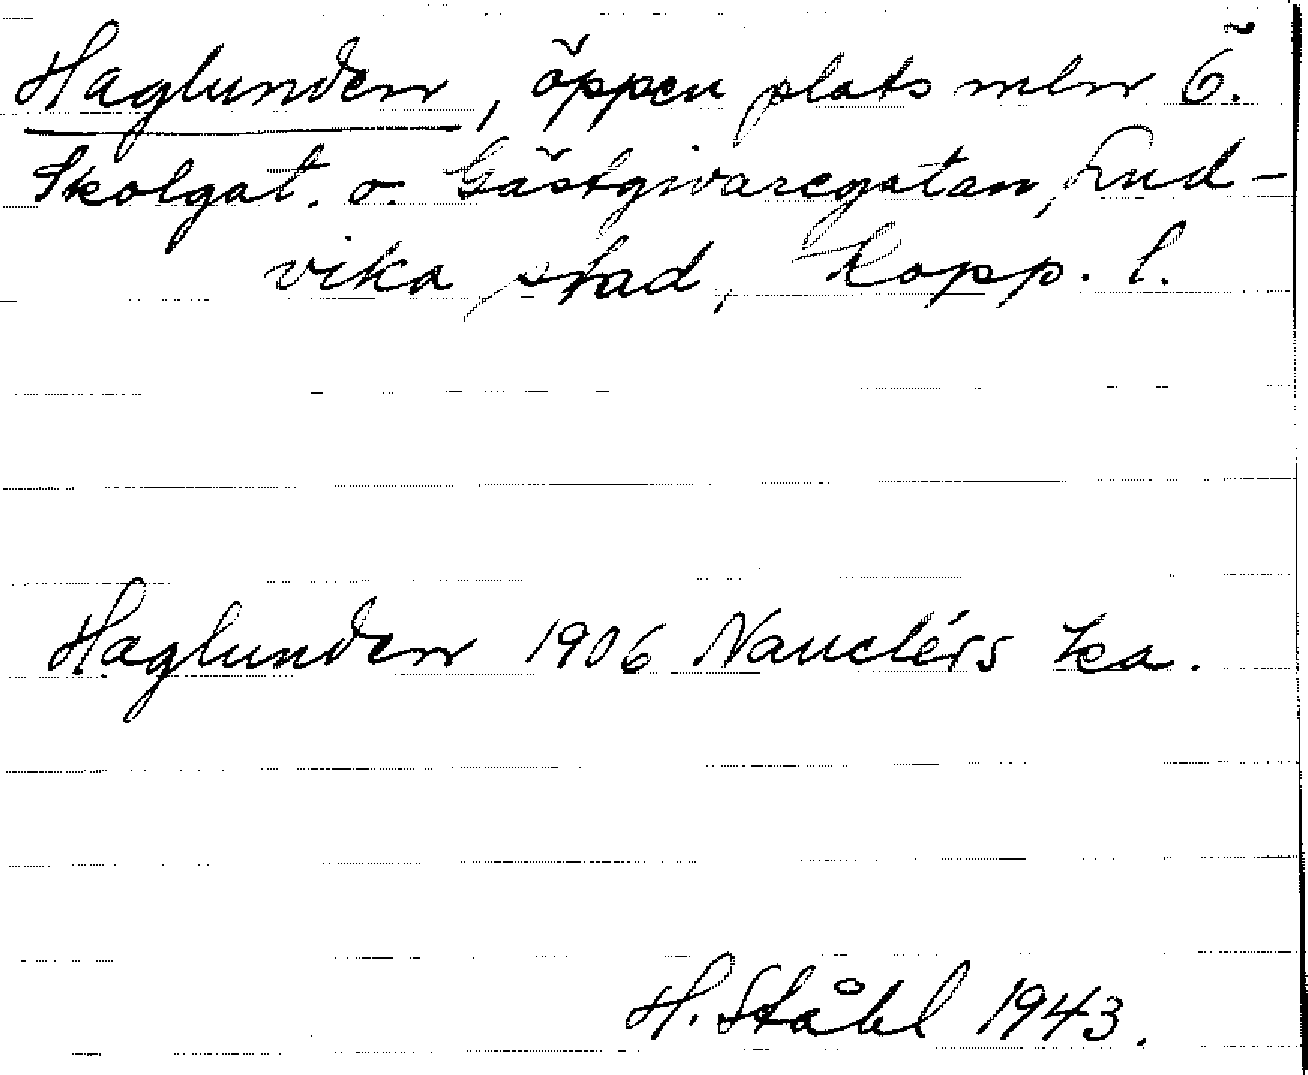 Haglunden, öppen plats mln Ö.
Skolgat. o. Gästgivaregatan, Lud-
vika stad, Kopp. l.
Haglunden 1906 Nauclérs ka.
H. Ståhl 1943.